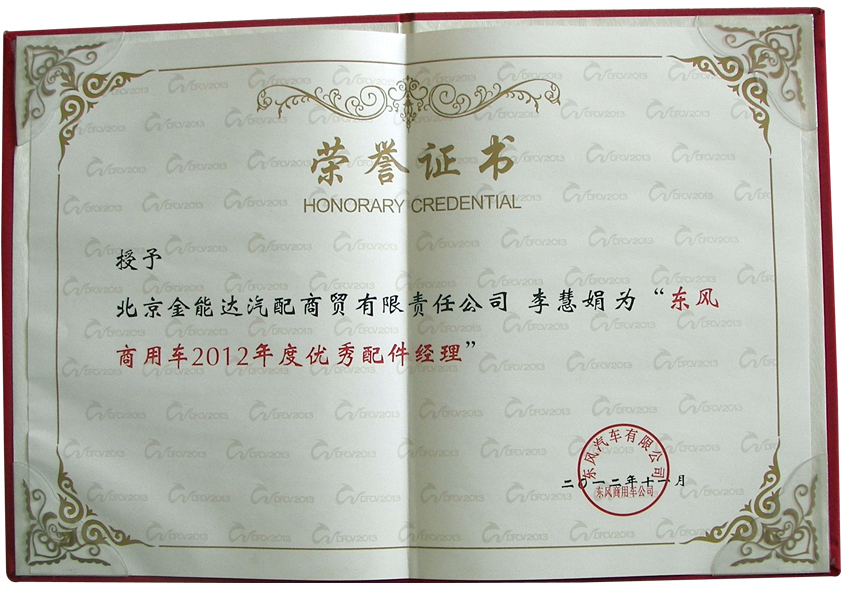 荣誉证书
HONORARY CREDENTIAL
授予
北京金能达汽配商贸有限责任公司 李慧娟为“东风
商用车2012年度优秀配件经理”
东风汽车有限公司
二〇一二年十一月
东风商用车公司